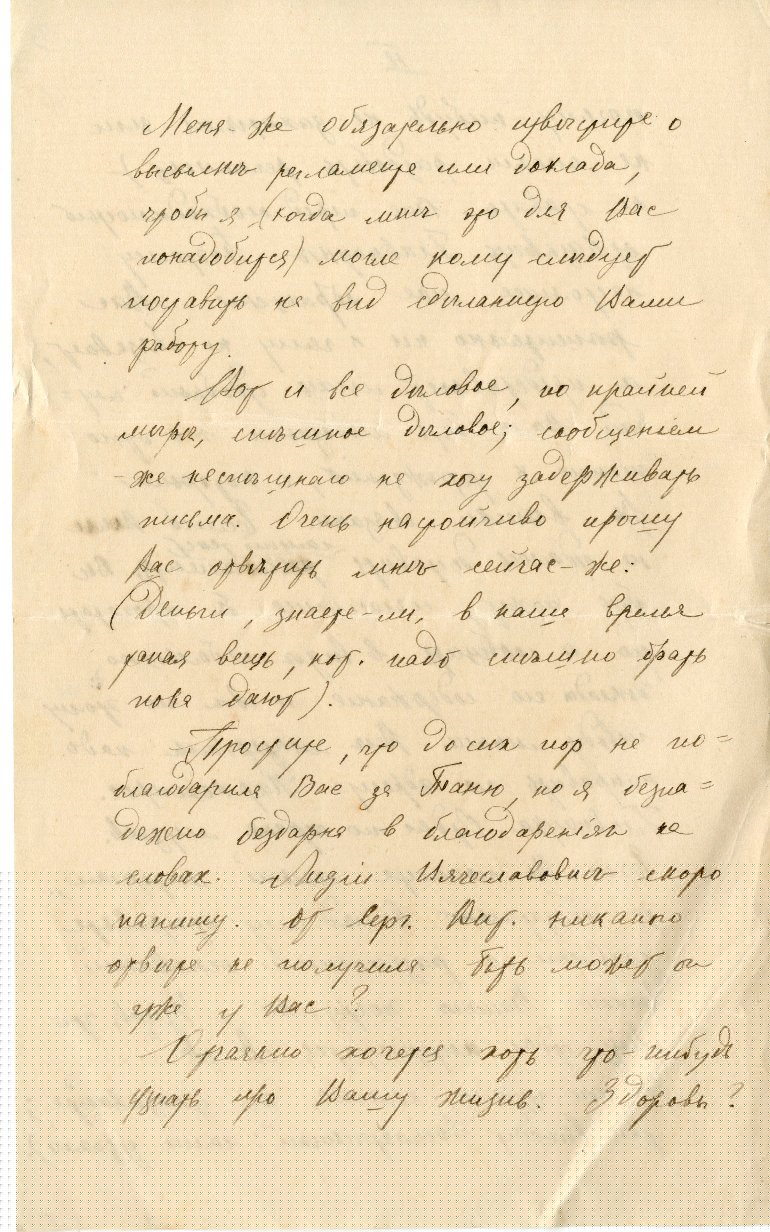 Меня же обязательно извѣстите о
высылкѣ регламента или доклада,
чтобы я (когда мнѣ это для Вас
понадобится) могла кому слѣдует
поставить на вид сдѣланную Вами
работу.
Вот и все дѣловое, по крайней
мѣрѣ, спѣшное дѣловое; сообщеніем
же неспѣшнаго не хочу задерживать
письма. Очень настойчиво прошу
Вас отвѣтить мнѣ сейчас-же:
(Деньги, знаете-ли, в наше время
такая вещь, кот. надо спѣшно брать
пока дают).
Простите, что до сих пор не по=
благодарила Вас за Таню, но я безна=
дежно бездарна в благодареніях на
словах. Лидіи Вячеславовнѣ скоро
напишу. От Серг. Вит. никакого
отвѣта не получила. Быть может он
уже у Вас?
Страшно хочется хоть что-нибудь
узнать про Вашу жизнь. Здоровы?